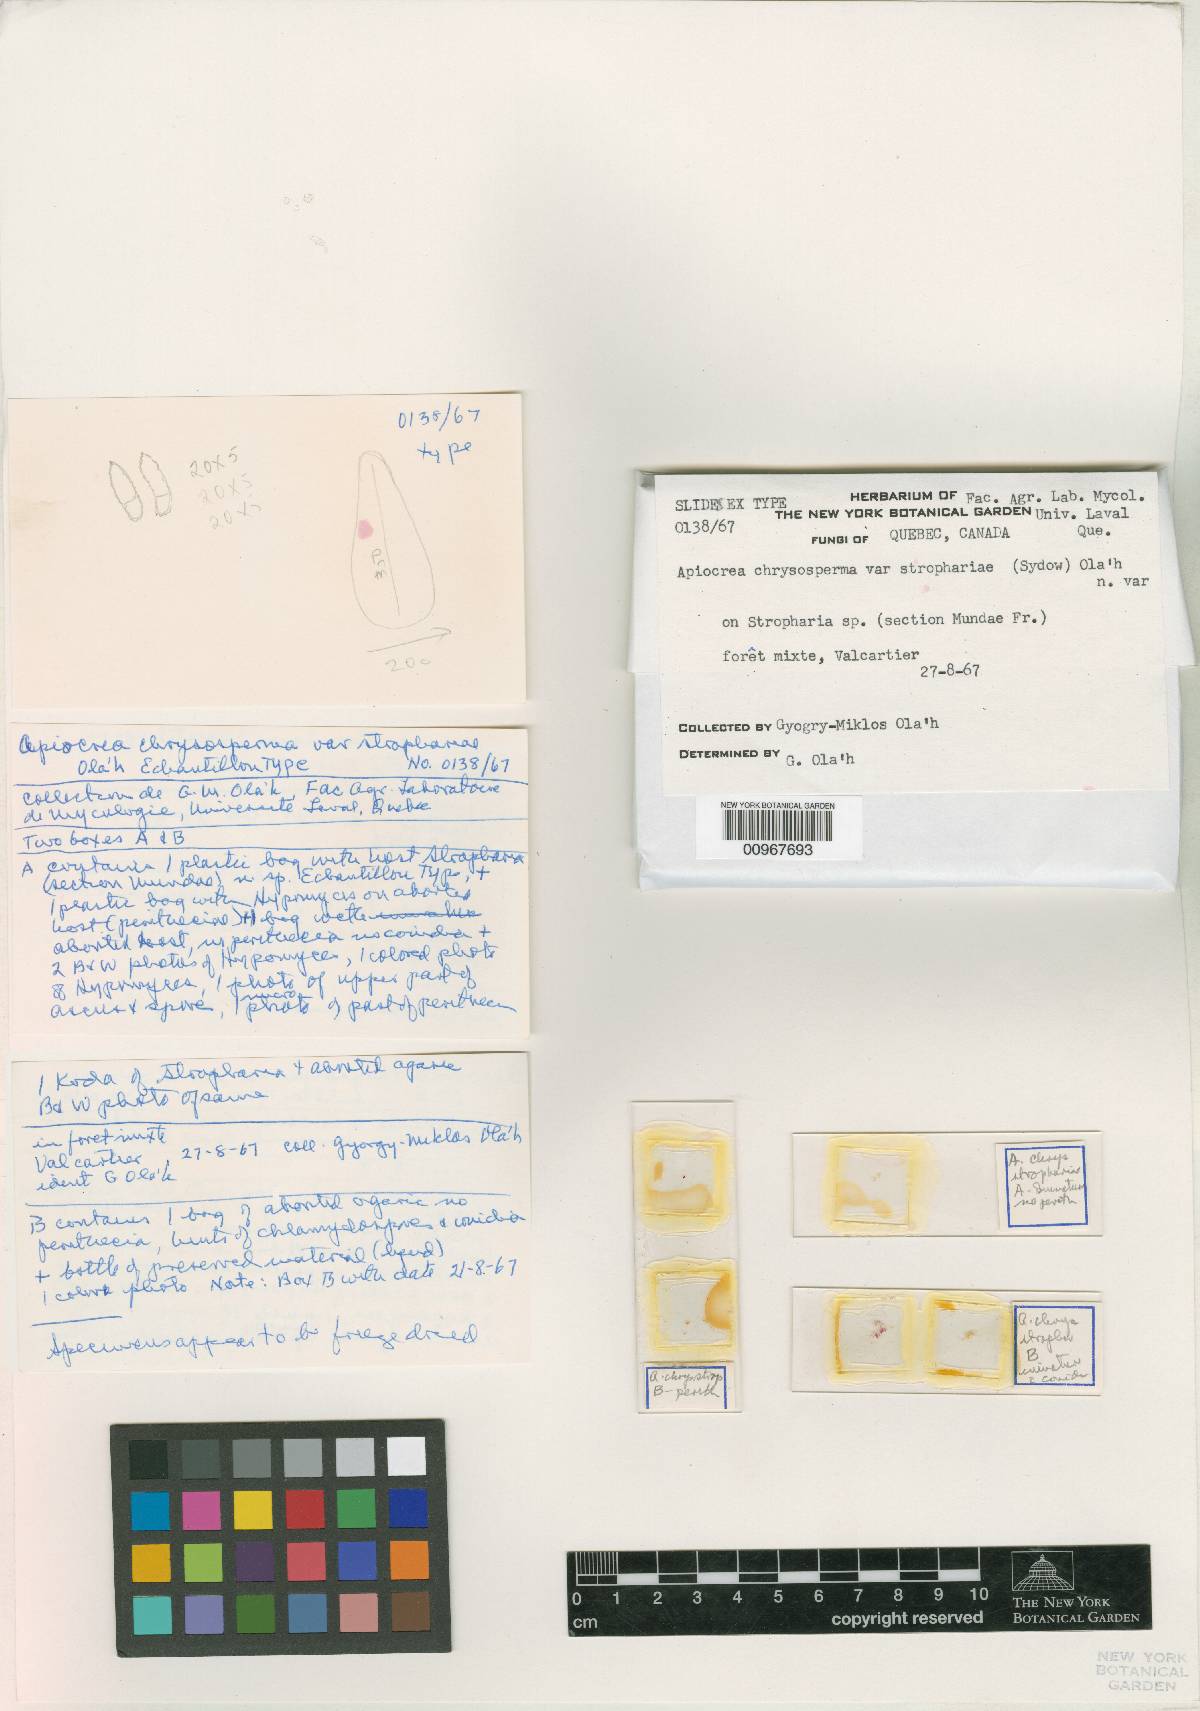 0138/67
type
20x5
20x5
20x5
350
200
Apiocrea chrysosperma var strophariae
Ola'h Echantillon Type No. 0138/67
Collection de G. M. Ola'h, Fac Agr. Laboratoire
de Mycologie, Universite Laval, Quebec
Two boxes A & B
A contains 1 plastic bag with host Stropharia
(section Mundae) n sp. Echantillon Type, +
1 plastic bag with Hypomyces on aborted
host (perithecia) + 1 bag with
aborted host, no perithecia no conidia +
2 B&W photos of Hypomyces, 1 colored photo
of Hypomyces, 1 photo of upper part of
ascus & spore, 1 micro photo of part of perithecium
1 Koda of Stropharia + aborted agaric
B&W photo of same
in foret mixte
Valcartier, 27-8-67 coll. Gyorgy-Miklos Ola'h
ident G Ola'h
B contains 1 bag of aborted agaric no
perithecia, bunts of chlamydospores & conidia
+ bottle of preserved material (liquid)
1 color photo Note: Box B with date 21-8-67
Specimens appear to be freeze dried
SLIDES EX TYPE HERBARIUM OF Fac. Agr. Lab. Mycol.
0138/67 THE NEW YORK BOTANICAL GARDEN Univ. Laval
FUNGI OF QUEBEC, CANADA Que.
Apiocrea chrysosperma var strophariae (Sydow) Ola'h
n. var
on Stropharia sp. (section Mundae Fr.)
forêt mixte, Valcartier
27-8-67
COLLECTED BY Gyogry-Miklos Ola'h
DETERMINED BY G. Ola'h
NEW YORK BOTANICAL GARDEN
00967693
A. chrys strop
B - perith
A. chrys
stropharia
A.
no perith
A. chrys
stroph
B
& conidia
0 1 2 3 4 5 6 7 8 9 10
cm
copyright reserved
THE NEW YORK
BOTANICAL GARDEN
NEW YORK
BOTANICAL
GARDEN